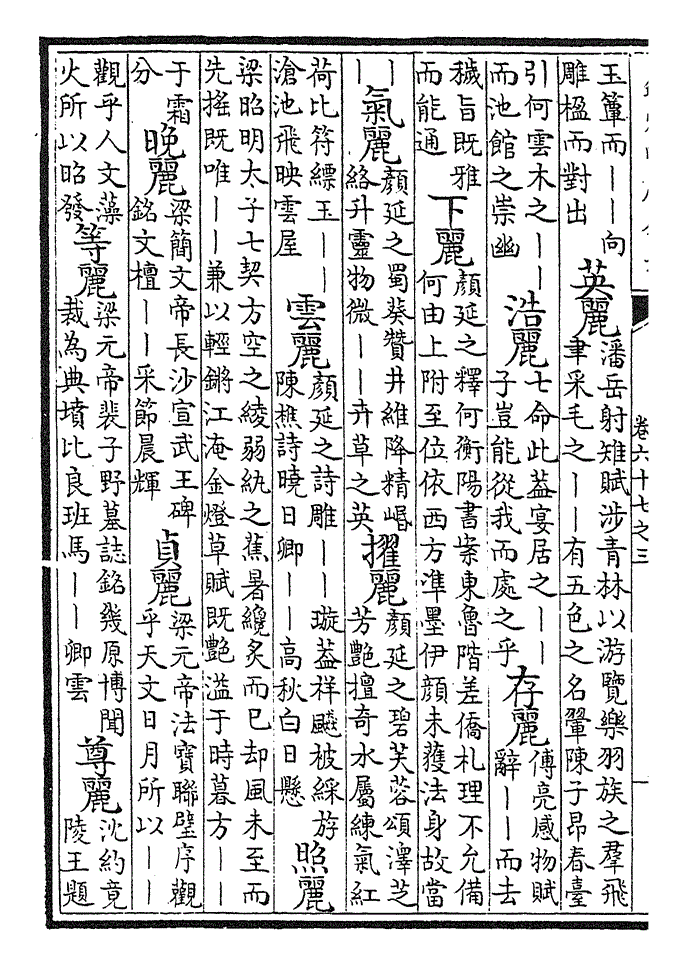 玉簟而——向雕楹而對出 英麗 潘岳射雉賦涉青林以游覽樂羽族之羣飛聿采毛之——有五色之名翬陳子昂春臺
引何雲木之——而池館之崇幽 浩麗 七命此葢宴居之——子豈能從我而處之乎 存麗 傅亮感物賦辭——而去
穢旨既雅而能通 下麗 顏延之釋何衡陽書案東魯階差僑札理不允備何由上附至位依西方準墨伊顏未獲法身故當
—— 氣麗 顏延之蜀葵贊井維降精岷絡升靈物微——卉草之英 擢麗 顏延之碧芙蓉頌澤芝芳艷擅奇水屬練氣紅
荷比符縹玉——滄池飛映雲屋 雲麗 顏延之詩雕——璇葢祥飈被綵斿陳樵詩曉日卿——高秋白日懸 照麗
梁昭明太子七契方空之綾弱紈之蕉暑纔炙而已却風未至而先搖既唯——兼以輕鏘江淹金燈草賦既艷溢于時暮方——
于霜分 晚麗 梁簡文帝長沙宣武王碑銘文檀——采節晨輝 貞麗 梁元帝法寶聯璧序觀乎天文日月所以——
觀乎人文藻火所以昭發 等麗 梁元帝裴子野墓誌銘幾原博聞裁為典墳比良班馬——卿雲 尊麗 沈約竟陵王題
卷六十七之三